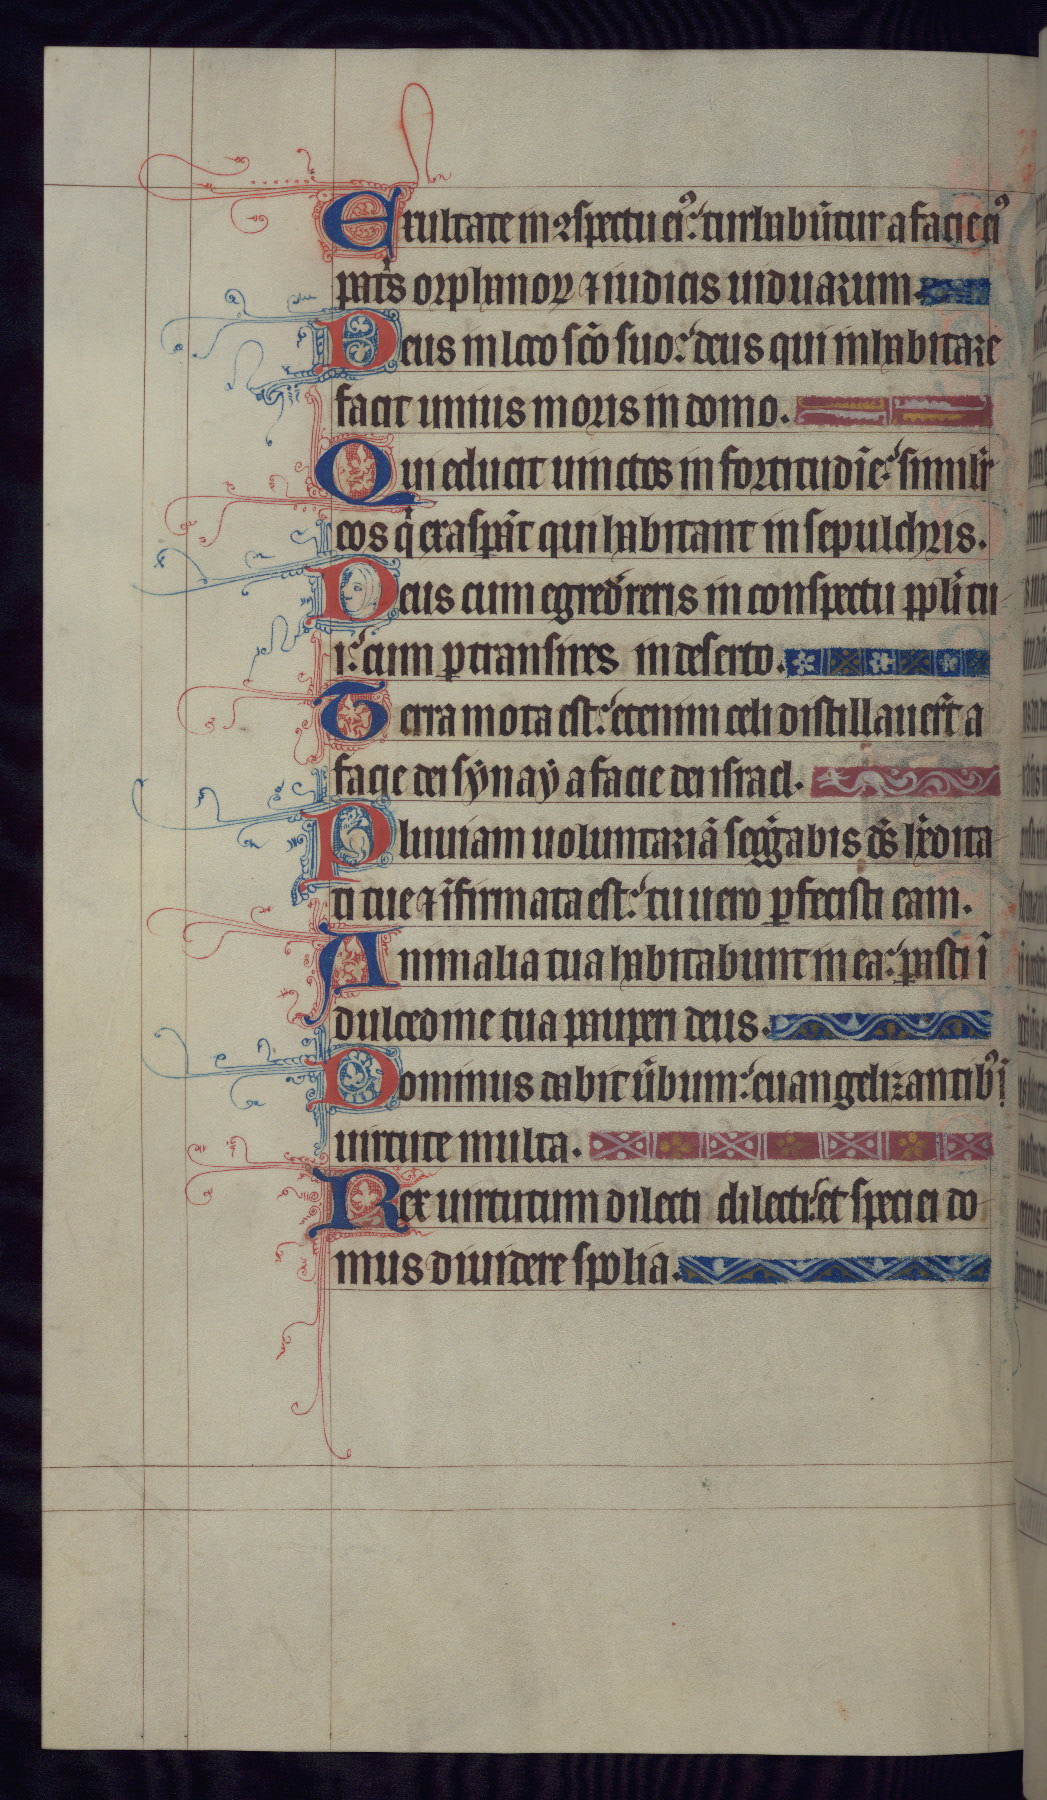 Exultate in ꝯspectu eiꝰ: turbabūtur a facie eiꝰ
pat̄s orphanoꝝ ⁊ iudicis uiduarum.
Deus in loco sc̄o suo: deus qui inhabitare
facit unius moris in domo.
Qui educit uinctos in fortitudīe: similr̄
eos q̄ exaspāt qui habitant in sepulchris.
Deus cum egred̄reris in conspectu ppl̄i tu
i: cum ꝑtransires in deserto.
Terra mota est: etenim celi distillauer̄t a
facie dei sẏnaẏ a facie dei israel.
Pluuiam uoluntariā seḡgabis ds̄ her̄dita
ti tue ⁊ īfirmata est: tu uero ꝑfecisti eam.
Animalia tua habitabunt in ea: parasti ī
dulcedine tua pauperi deus.
Dominus dabit ūbum: euangelizantibꝰ ī
uirtute multa.
Rex uirtutum dilecti dilecti: et speciei do
mus diuidere spolia.